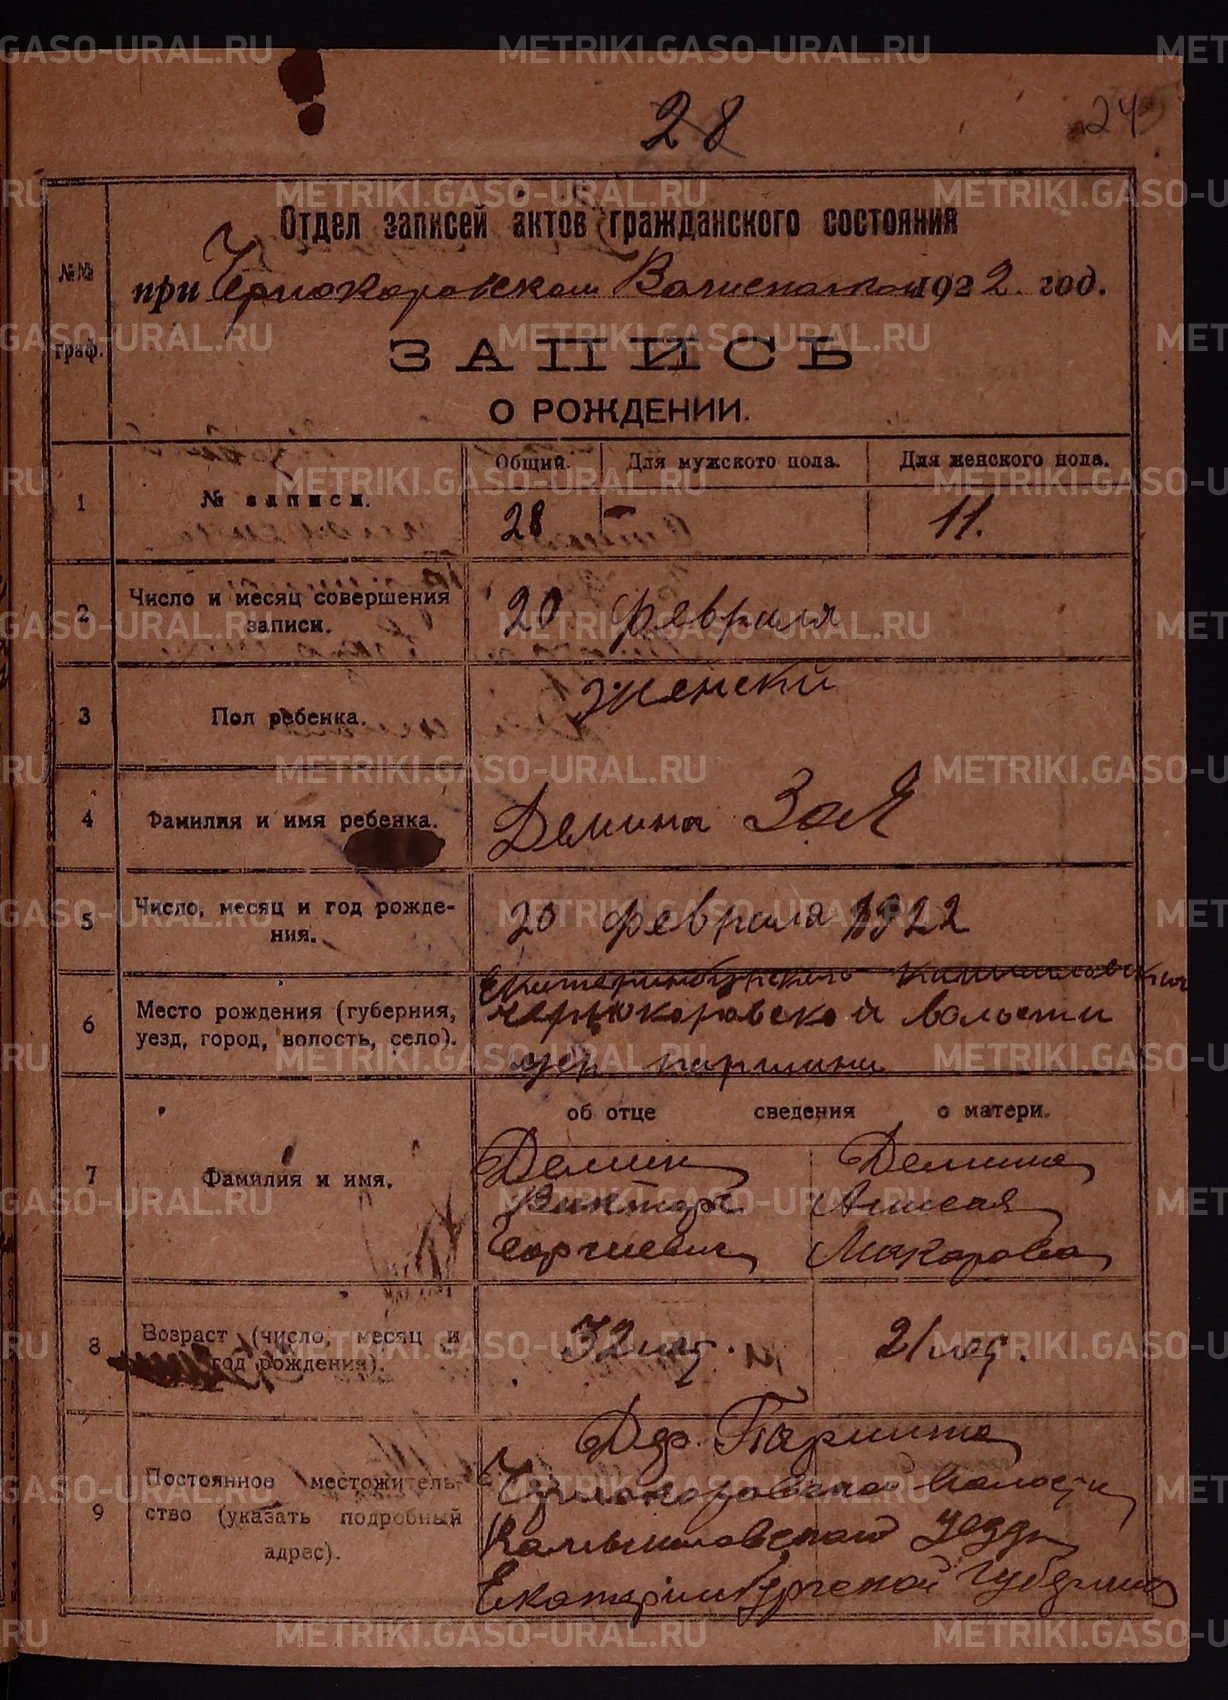 28
24
Отдел записей актов гражданского состояния
при Чернокоровском 1922 год.
№№ граф.
ЗАПИСЬ
О РОЖДЕНИИ.
1 № записи.
Общий. Для мужского пола. Для женского пола.
28 — 11.
2 Число и месяц совершения
записи.
20 февраля
3 Пол ребенка.
женски
4 Фамилия и имя ребенка.
Демина Зоя
5 Число, месяц и год рожде-
ния.
20 февраля 1922
6 Место рождения (губерния,
уезд, город, волость, село).
Екатеринбургской
Чернокоровской вольсти
дер паршини
об отце сведения о матери.
7 Фамилия и имя.
Демин Демина
Виктор
Макарова
8 Возраст (число, месяц и
год рождения).
32 лет. 21 лет.
9 Постоянное местожитель-
ство (указать подробный
адрес).
Дер. Паршина
Чернокоровской волости
Камышловского уезда
Екатеринбургской губернии
METRIKI.GASO-URAL.RU